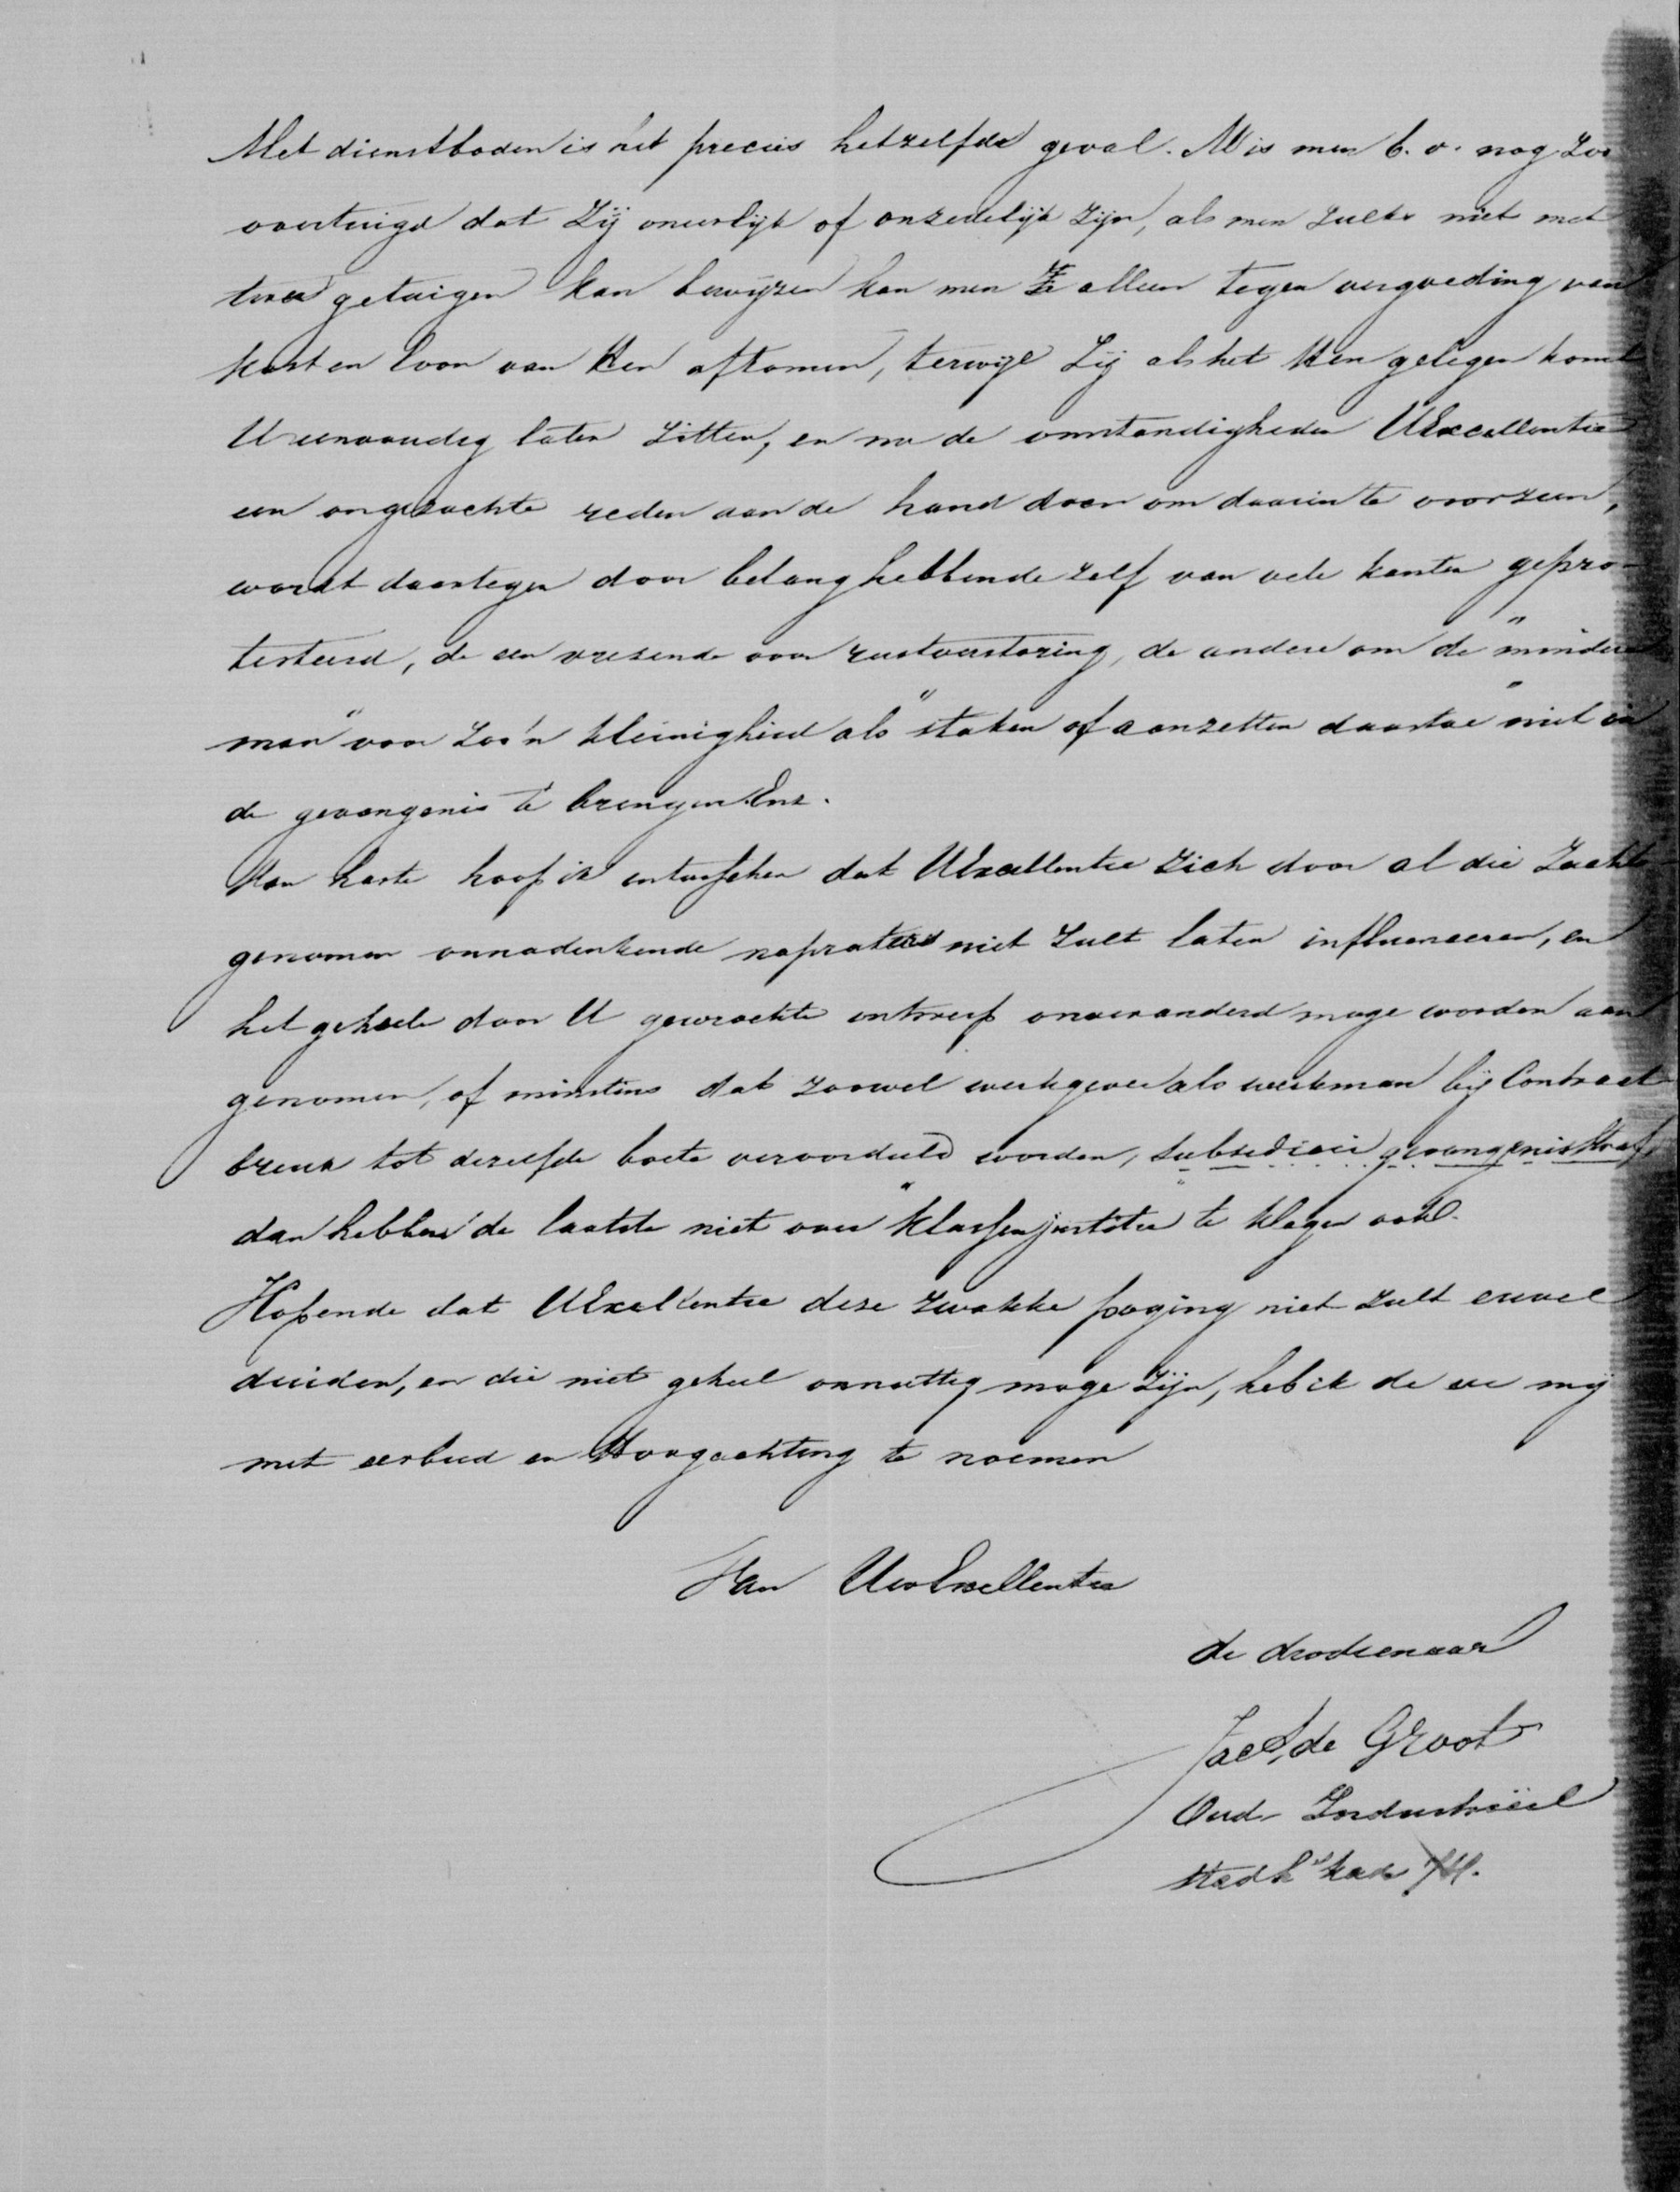 Met dienstboden is het precies hetzelfde geval. Al is men b.v. nog zoo
overtuigd dat Zij oneerlijk of onzedelijk zijn, als men zulks niet met
twee getuigen kan bewijzen kan men ze alleen tegen vergoeding van
kost en loon van Hen afkomen, terwijl Zij als het Hen gelegen komt
U eenvoudig laten zitten, en nu de omstandigheden UExcellentie
een ongezochte reden aan de hand doen om daarin te voorzien,
wordt daartegen door belanghebbende zelf van vele kanten gepro-
testeerd, de een vreezende voor rustverstoring, de andere om de "mindere
man" voor zoo'n kleinigheid als "staken of aanzetten daartoe" niet in
de gevangenis te brengen Enz.
Van harte hoop ik intusschen dat UExcellentie zich door al die Zacht
genomen onnadenkende napraters niet zult laten influenceeren, en
het geheele door U gewrochte ontwerp onveranderd moge worden aan
genomen, of minstens dat zoowel werkgever als werkman bij Contract
breuk tot dezelfde boete veroordeeld worden, subsidiair gevangenisstraf
dan hebben de laatste niet over "klassenjustitie" te klagen ook.
Hopende dat UExcellentie deze zwakke poging niet zult euvel
duiden, en die niet geheel onnuttig moge zijn, heb ik de eer mij
met eerbied en Hoogachting te noemen
Van UwExcellentie
de drodienaar
Jac S, de Groot
Oud-Industrieel
stadh kade